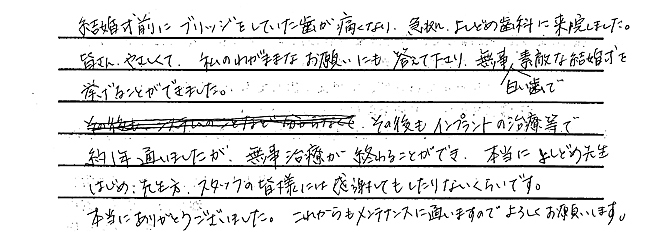 結婚式前にブリッジをしていた歯が痛くなり、急拠、よしどめ歯科に来院しました。
皆さん、やさしくて、私のわがままなお願いにも答えて下さり、無事、素敵な結婚式を
白い歯で
挙げることができました。
その後もインプラントの治療等で
約1年通いましたが、無事治療が終わることができ、本当によしどめ先生
はじめ、先生方、スタッフの皆様には感謝してもしたりないくらいです。
本当にありがとうございました。これからもメンテナンスに通いますのでよろしくお願いします。